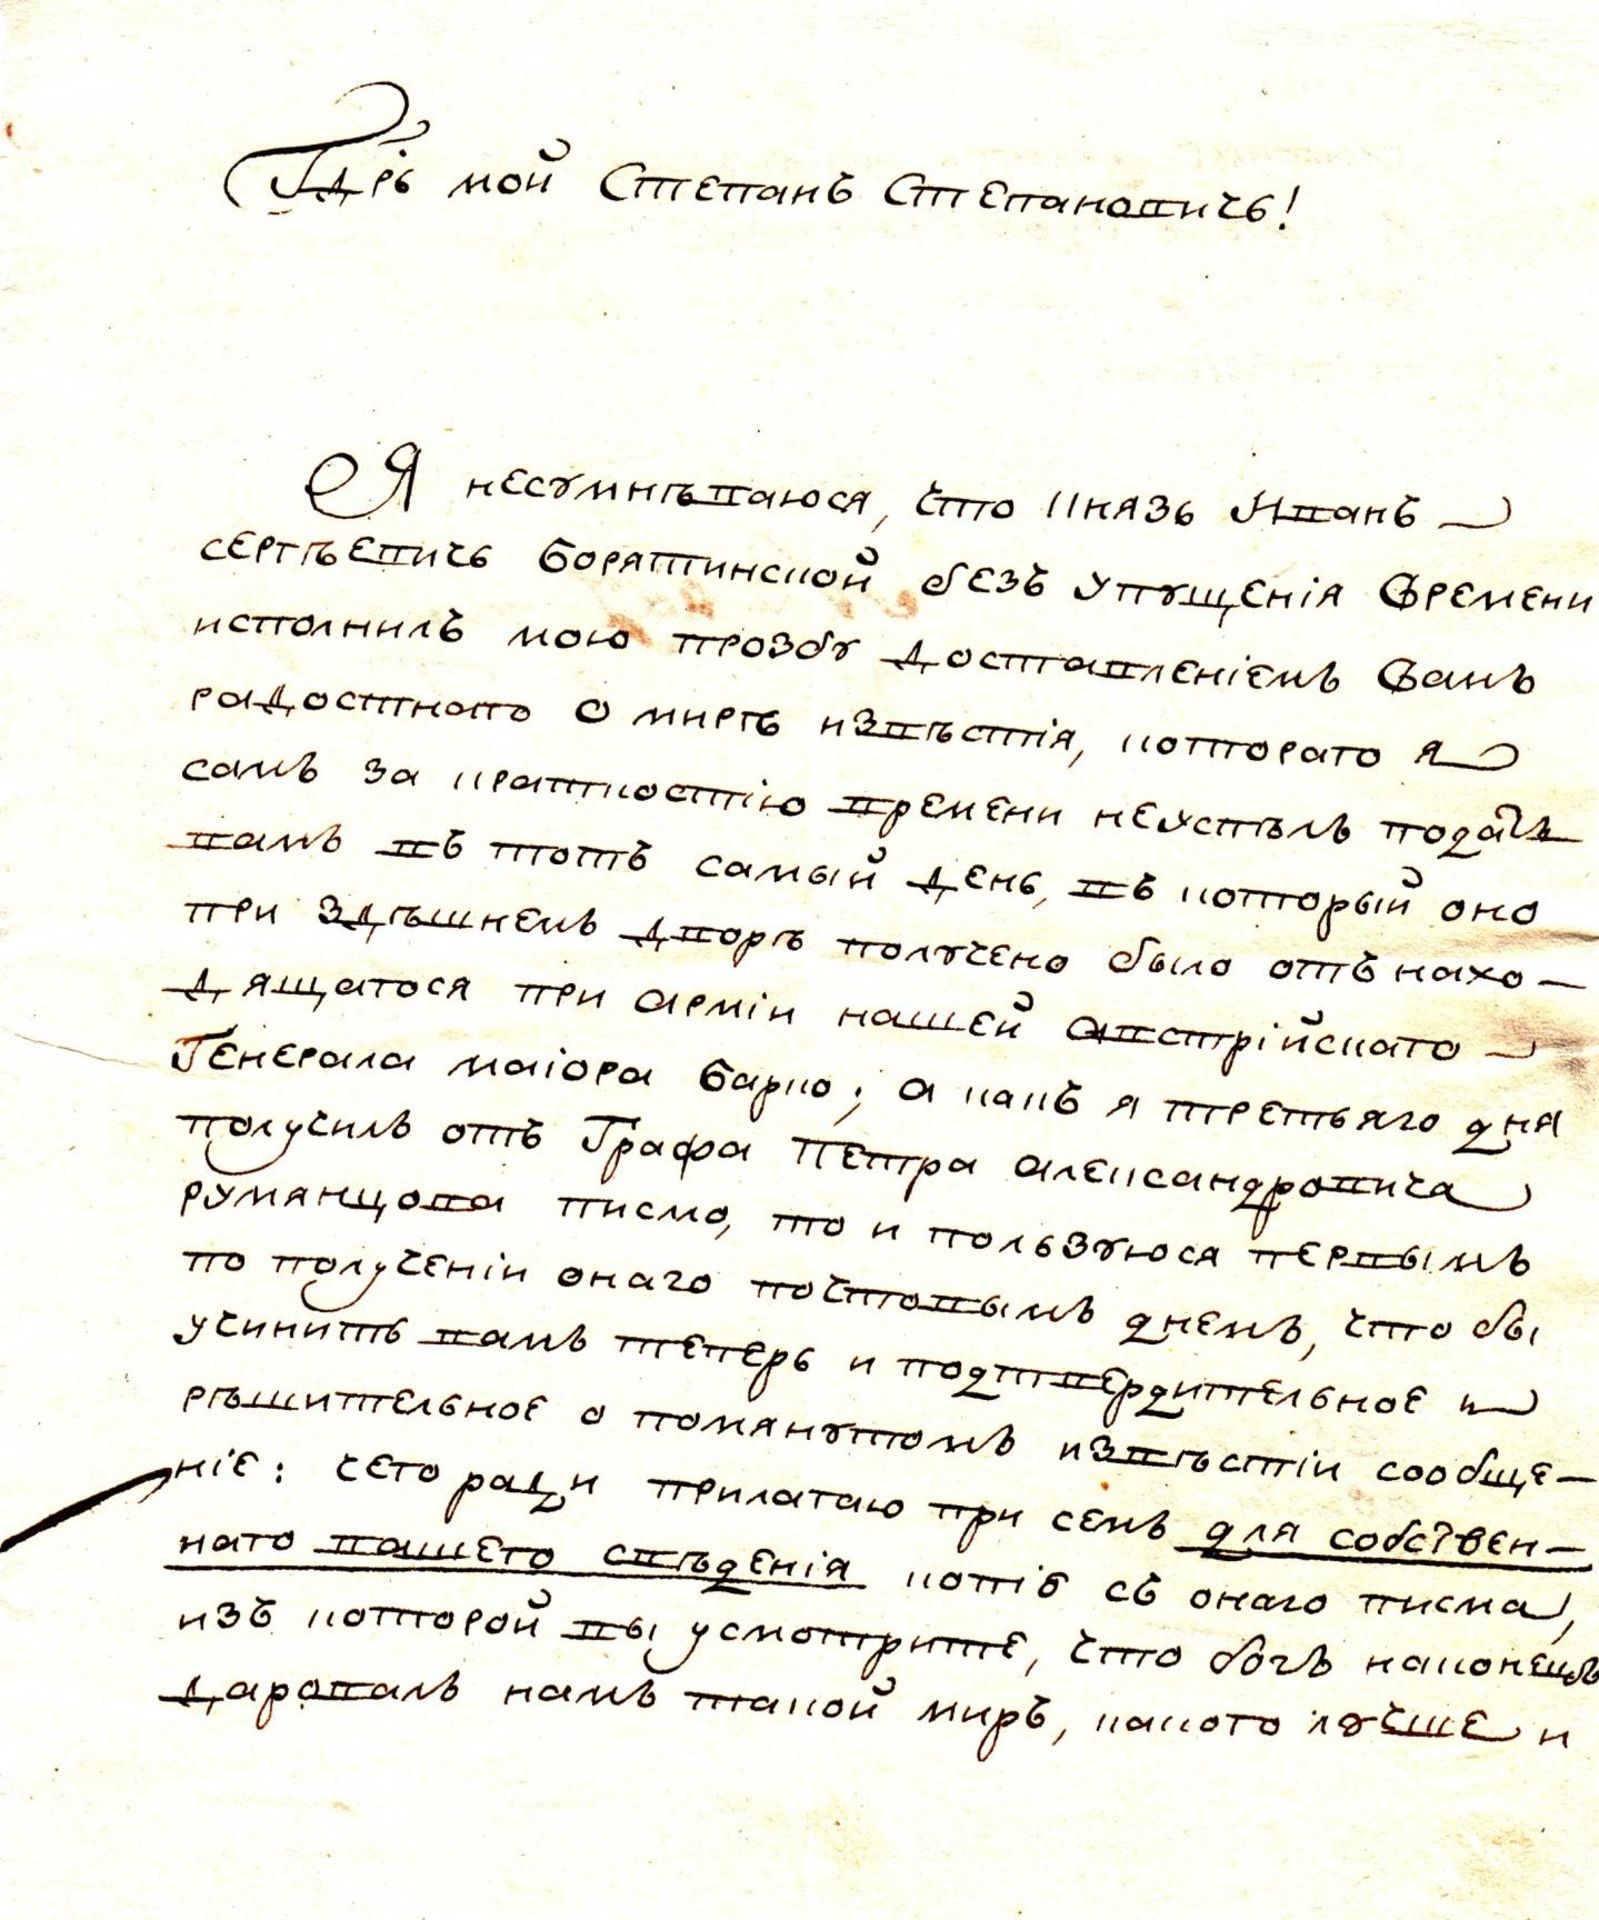 Гдрь мой Степанъ Степановичь!
Я несумнѣваюся, что Князь Иванъ
сергѣевичь Борятинской безъ упущенія Времени
исполнилъ мою прозбу доставленіемъ Вамъ
радостнаго о мирѣ извѣстія, котораго я
самъ за краткостію времени неуспѣлъ подать
вамъ въ тотъ самый день, въ который оно
при здѣшнемъ дворѣ получено было отъ нахо-
дящагося при арміи нашей австрійскаго
Генерала маіора Барко; а какъ я третьяго дня
получилъ отъ Графа Петра александровича
румянцова писмо, то и пользуюся первымъ
по полученіи онаго почтовымъ днемъ, что бы
учинить вамъ теперь и подтвердительное и
рѣшительное о помянутомъ извѣстіи сообще-
ніе: чего ради прилагаю при семъ для собствен-
наго вашего свѣденія копію съ онаго писма,
изъ которой вы усмотрите, что богъ наконецъ
даровалъ намъ такой миръ, какого лучше и